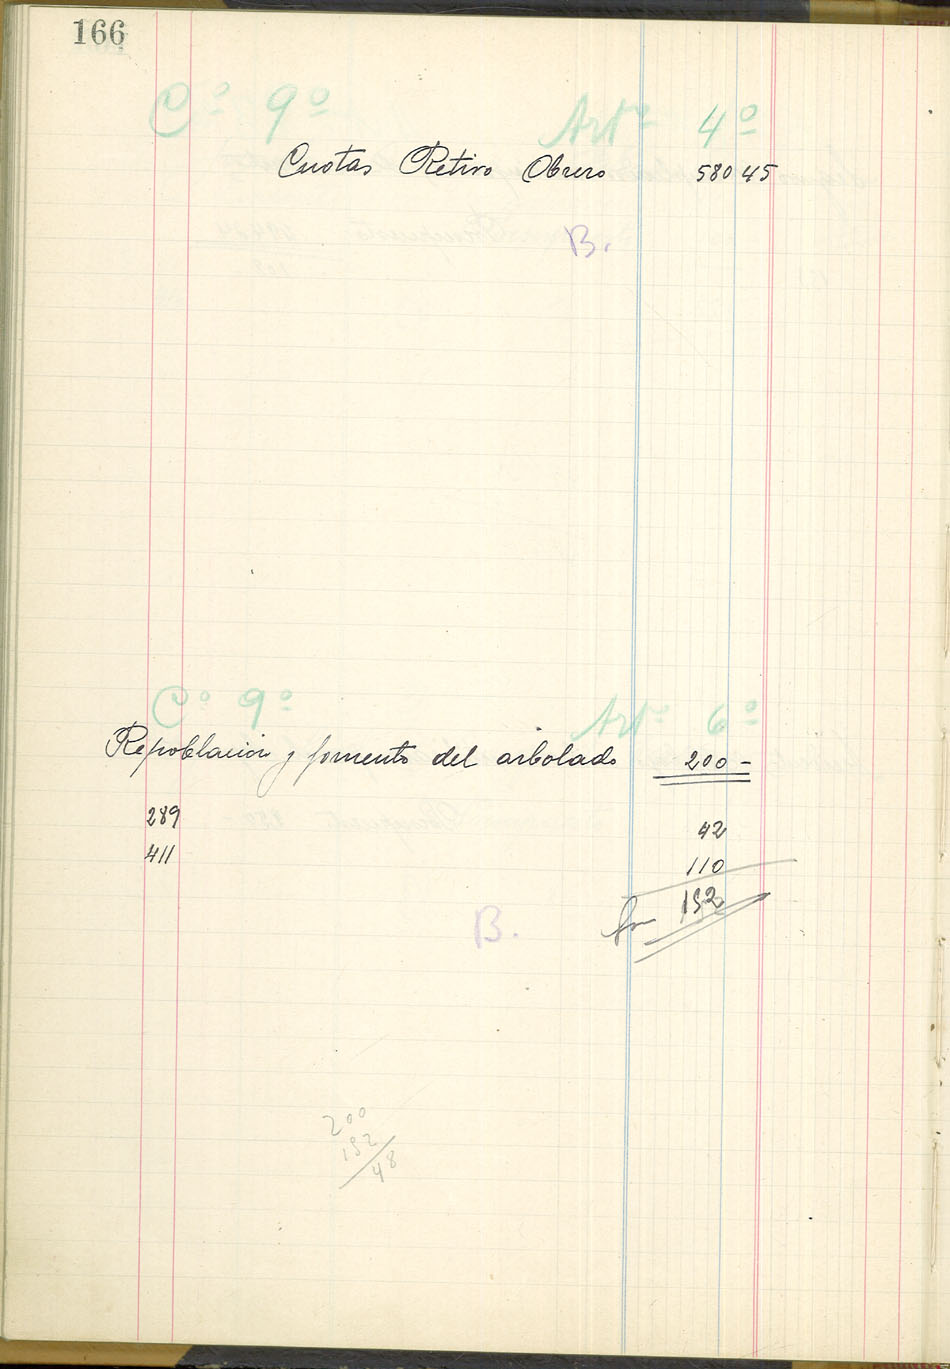 166
Cº 9º Artº 4º
Cuotas Retiro Obrero 580 45
B.
Cº 9º Artº 6º
Repoblación y fomento del arbolado 200 -
289 42
411 110
152
B.
200
152
48